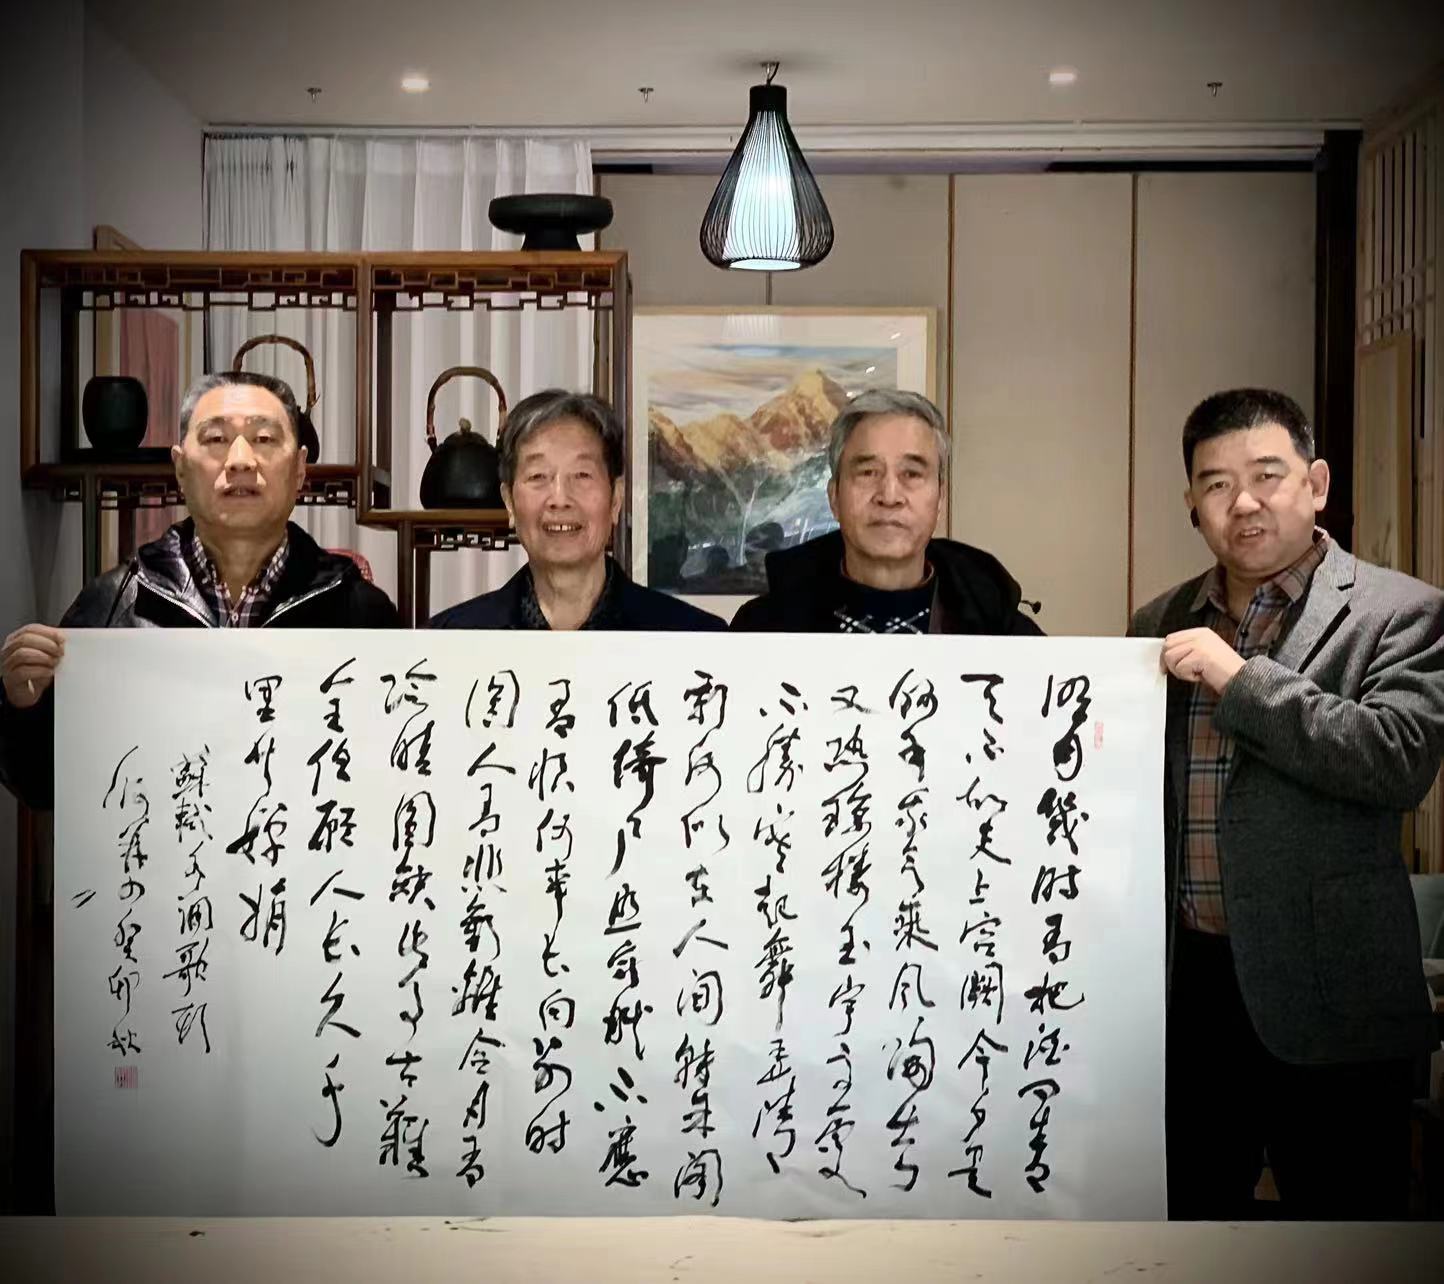 明月幾时有把酒问青
天不知天上宫阙今夕是
何年我欲乘风归去
又恐瓊楼玉宇高處
不勝寒起舞弄清
影何似在人间轉朱阁
低绮户照無眠不應
有恨何事长向别时
圆人有悲歡離合月有
阴晴圆缺此事古難
全但愿人长久千
里共婵娟
蘇轼水调歌头
癸卯秋